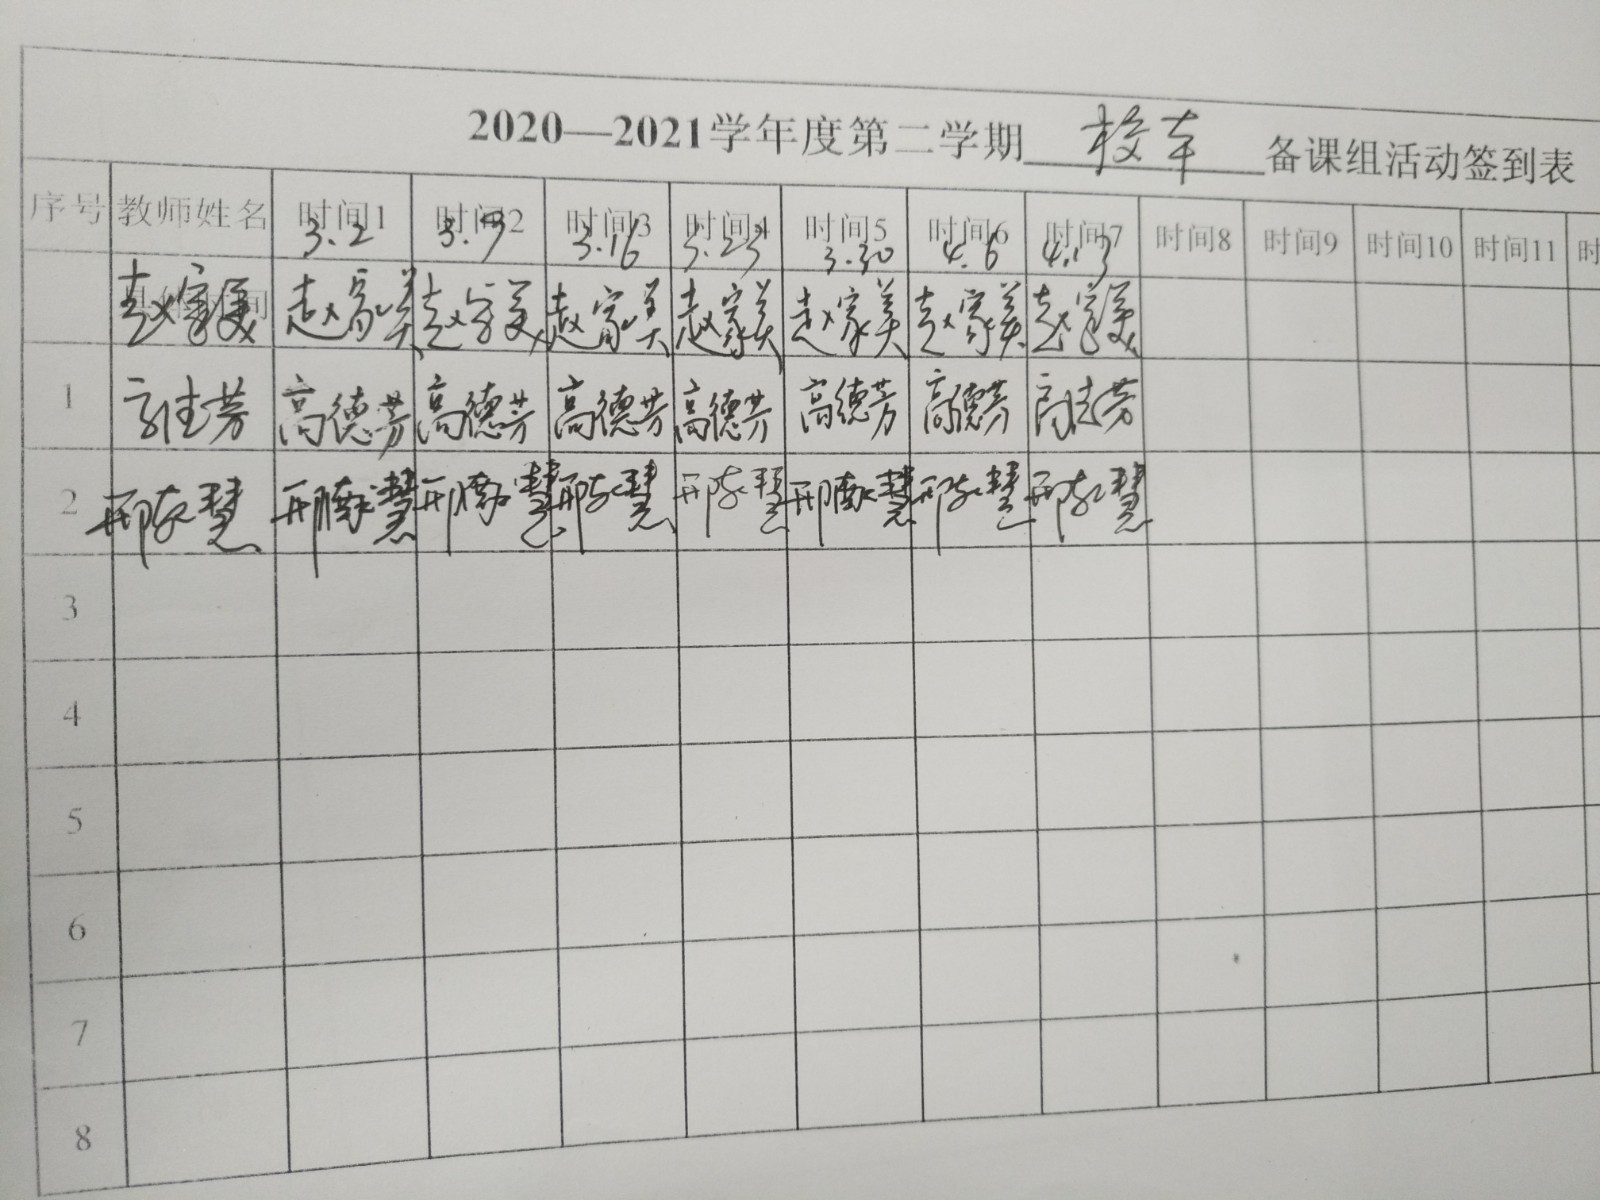 2020—2021学年度第二学期 校本 备课组活动签到表
序号 教师姓名 时间1 时间2 时间3 时间4 时间5 时间6 时间7 时间8 时间9 时间10 时间11 时
3.2 3.9 3.16 3.23 3.30 4.6 4.13
赵家美 赵家美 赵家美 赵家美 赵家美 赵家美 赵家美 赵家美
1 高德芳 高德芳 高德芳 高德芳 高德芳 高德芳 高德芳 高德芳
2 邢敬慧 邢敬慧 邢敬慧 邢敬慧 邢敬慧 邢敬慧 邢敬慧 邢敬慧
3
4
5
6
7
8